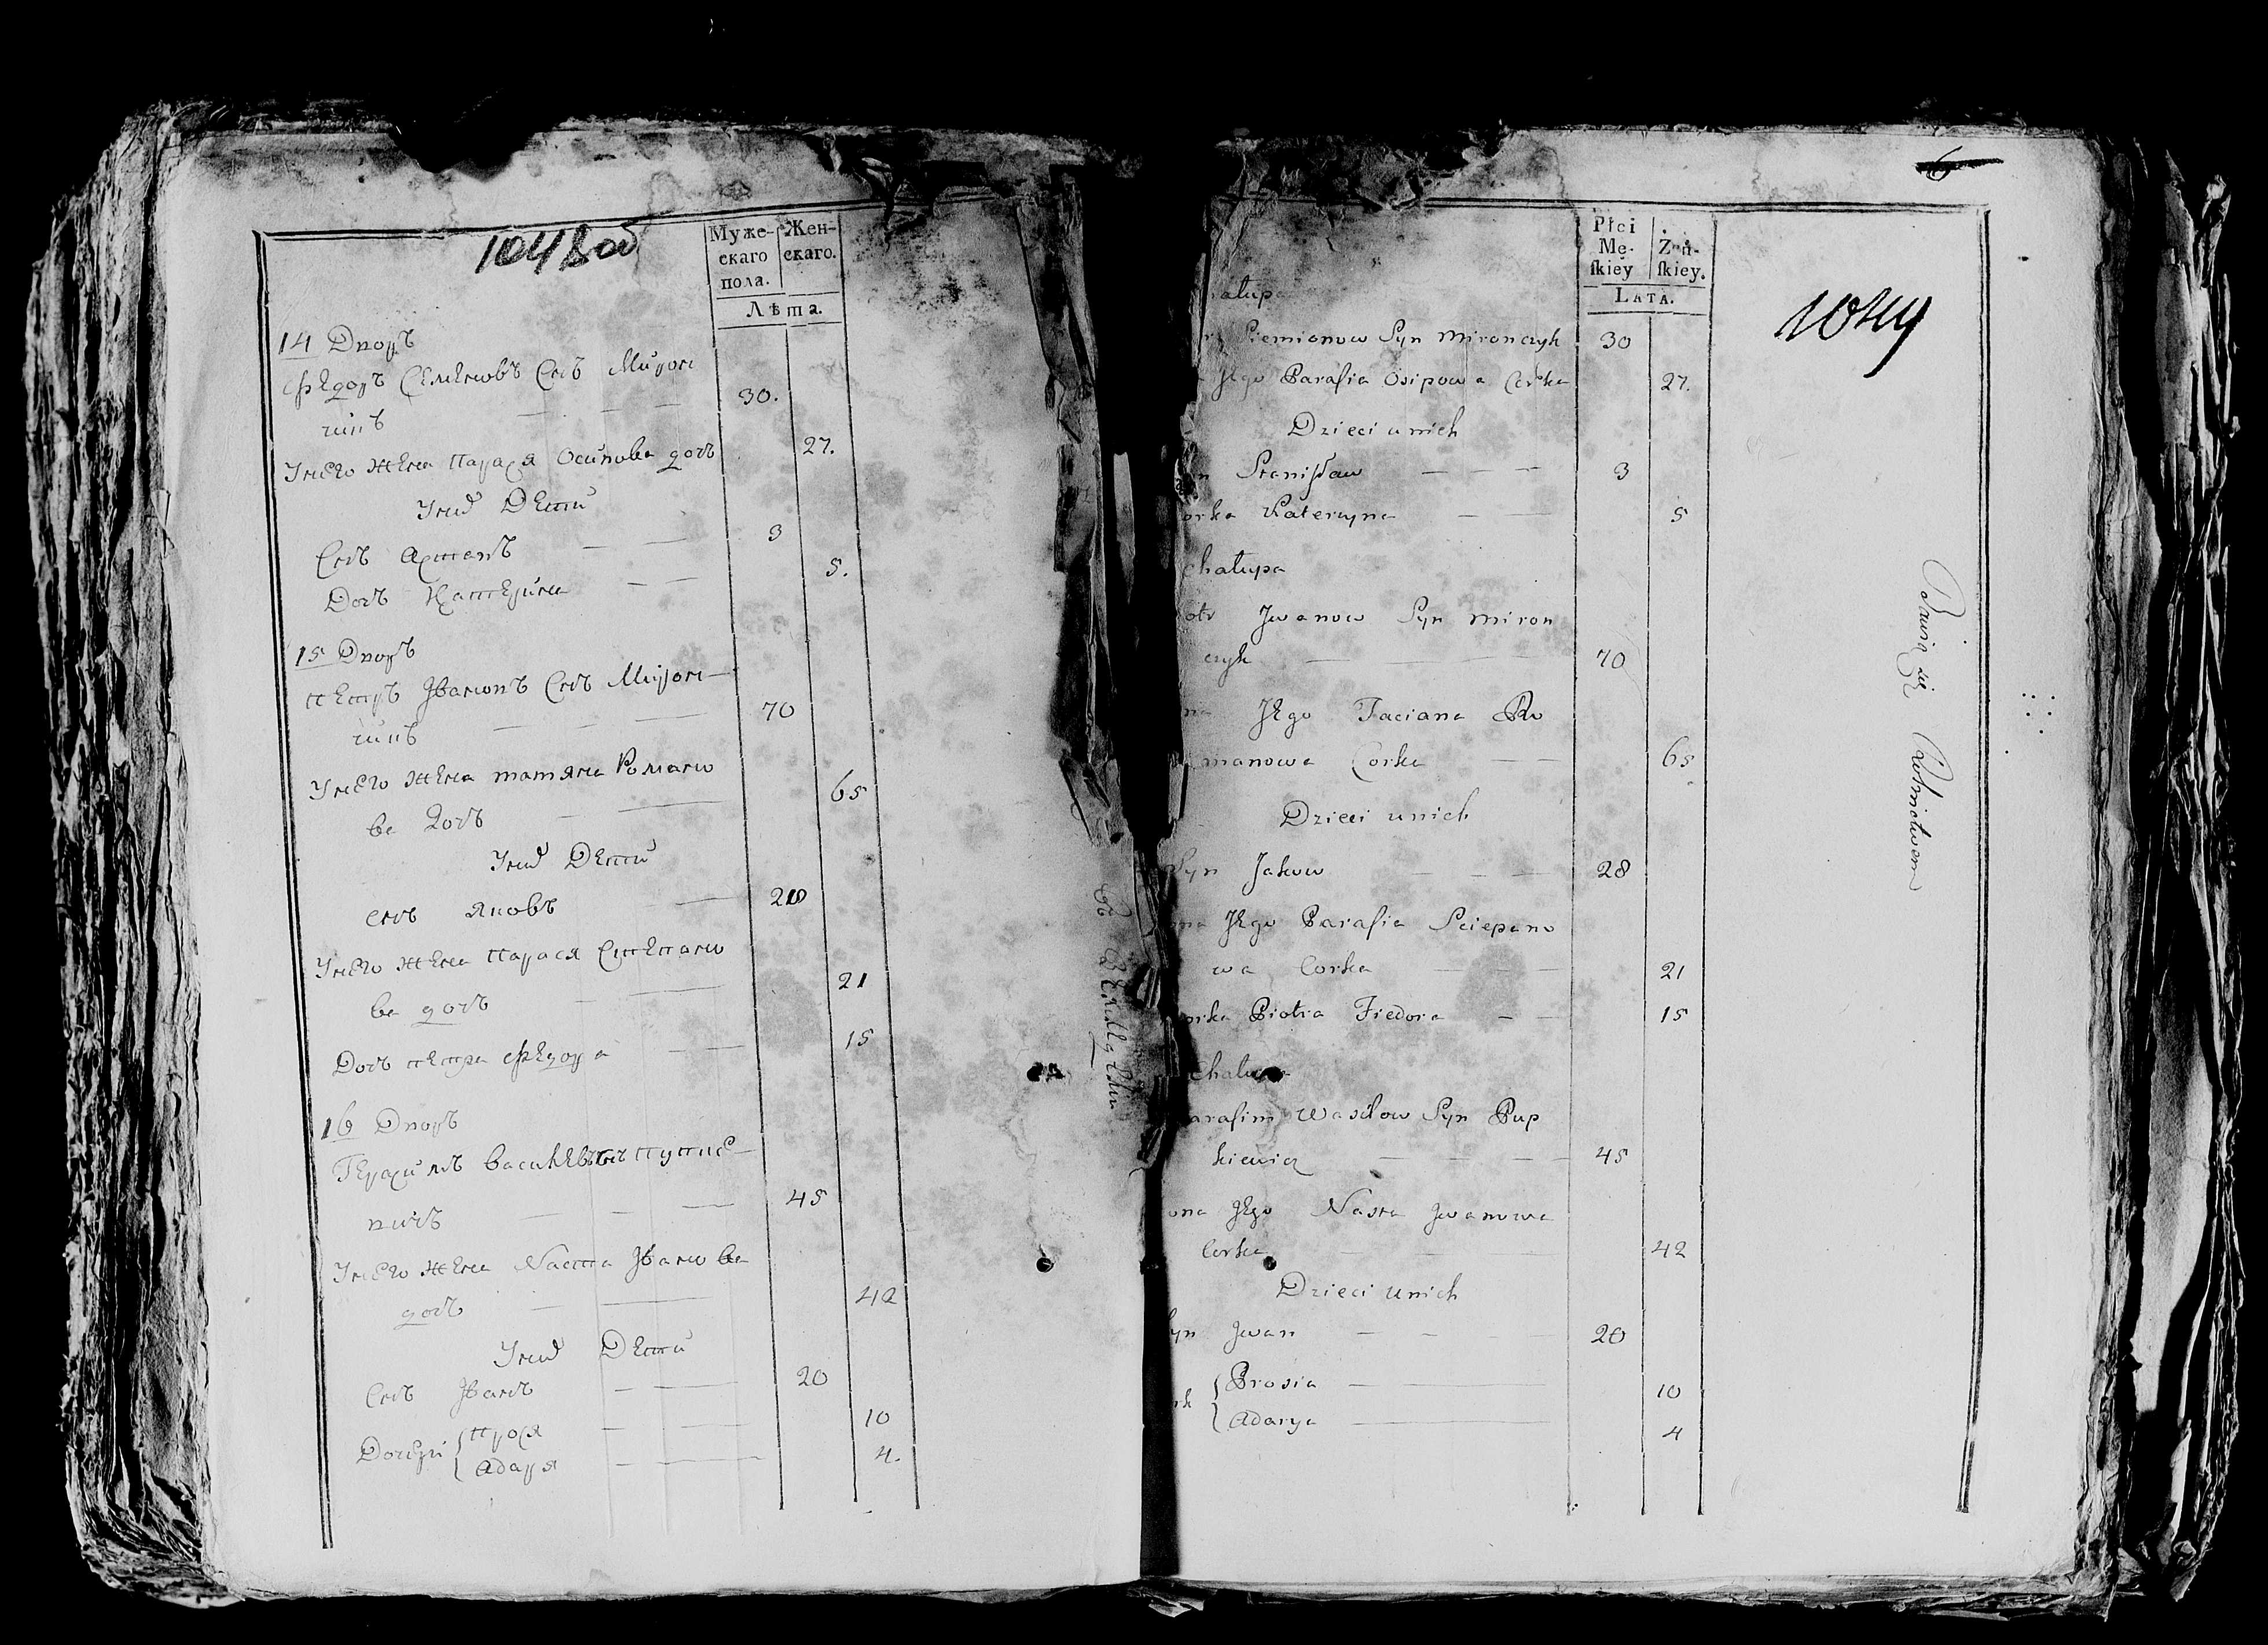 1048 об
Муже-
скаго
пола.
Жен-
скаго.
Лѣта.
14 Дворъ
Федоръ Семеновъ Снъ Мирон
чикъ 30.
У него жена Парася Осипова дочъ 27.
У них Дети
Снъ Астапъ 3
Дочъ Катерина 5.
15 Дворъ
Петръ Ивановъ Снъ Мирон-
чикъ 70
У него жена татяна Романо
ва Дочъ 65
У них Дети
снъ Яковъ 28
У него жена Парася Степано
ва дочъ 21
Дочъ петра Федора 15
16 Дворъ
Герасимъ Василевъ Снъ Пупке-
вичъ 45
У него жена Наста Ивано ва
дочъ 42
У них Дети
Снъ Иванъ 20
Дочери Прося 10
Адаря 4.
6
Płci
Mę-
ſkiey
Żeń-
ſkiey.
LATA.
1049
hałupa
Siemionow Syn Mironczyk 30
Jego Parasia Osipowa Corka 27.
Dzieci u nich
n Stanisław 3
orka Katerzyna 5
chałupa
otr Jwanow Syn Miron
czyk 70
na Jego Taciana Ro
manowa Corka 65
Dzieci u nich
Syn Jakow 28
ona Jego Parasia Sciepano
wa Corka 21
orka Piotra Fiedora 15
Chałupa
arasim Wasilow Syn Pup
kiewicz 45
ona Jego Nasta Jwanowa
Corka 42
Dzieci u nich
Syn Jwan 20
rk Prosia 10
Adarya 4
Bawią się Rolnictwem